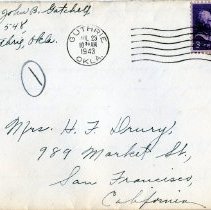 John B. Gatchell
548
Guthrie, Okla.
GUTHRIE
JUL 23
10 AM
1943
OKLA.
1
Mrs. H. F. Drury,
989 Market St.,
San Francisco,
California